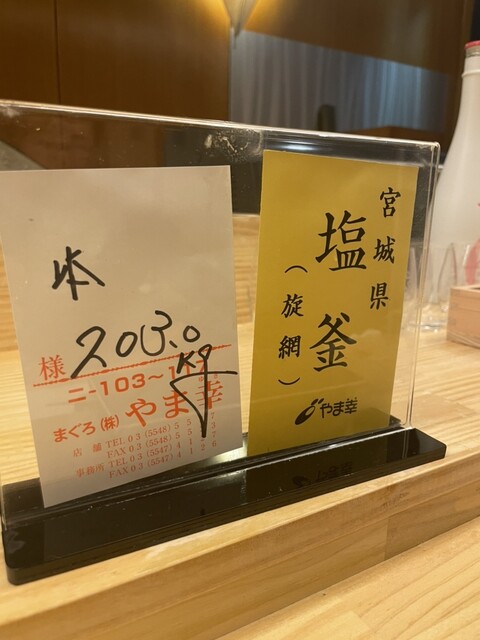 本
203.0
kg
様
ニ-103~1
まぐろ(株)やま幸
店舗 TEL 03 (5548)
FAX 03 (5548)
事務所 TEL 03 (5547)
FAX 03 (5547)
宮城県
塩釜
(旋網)
やま幸